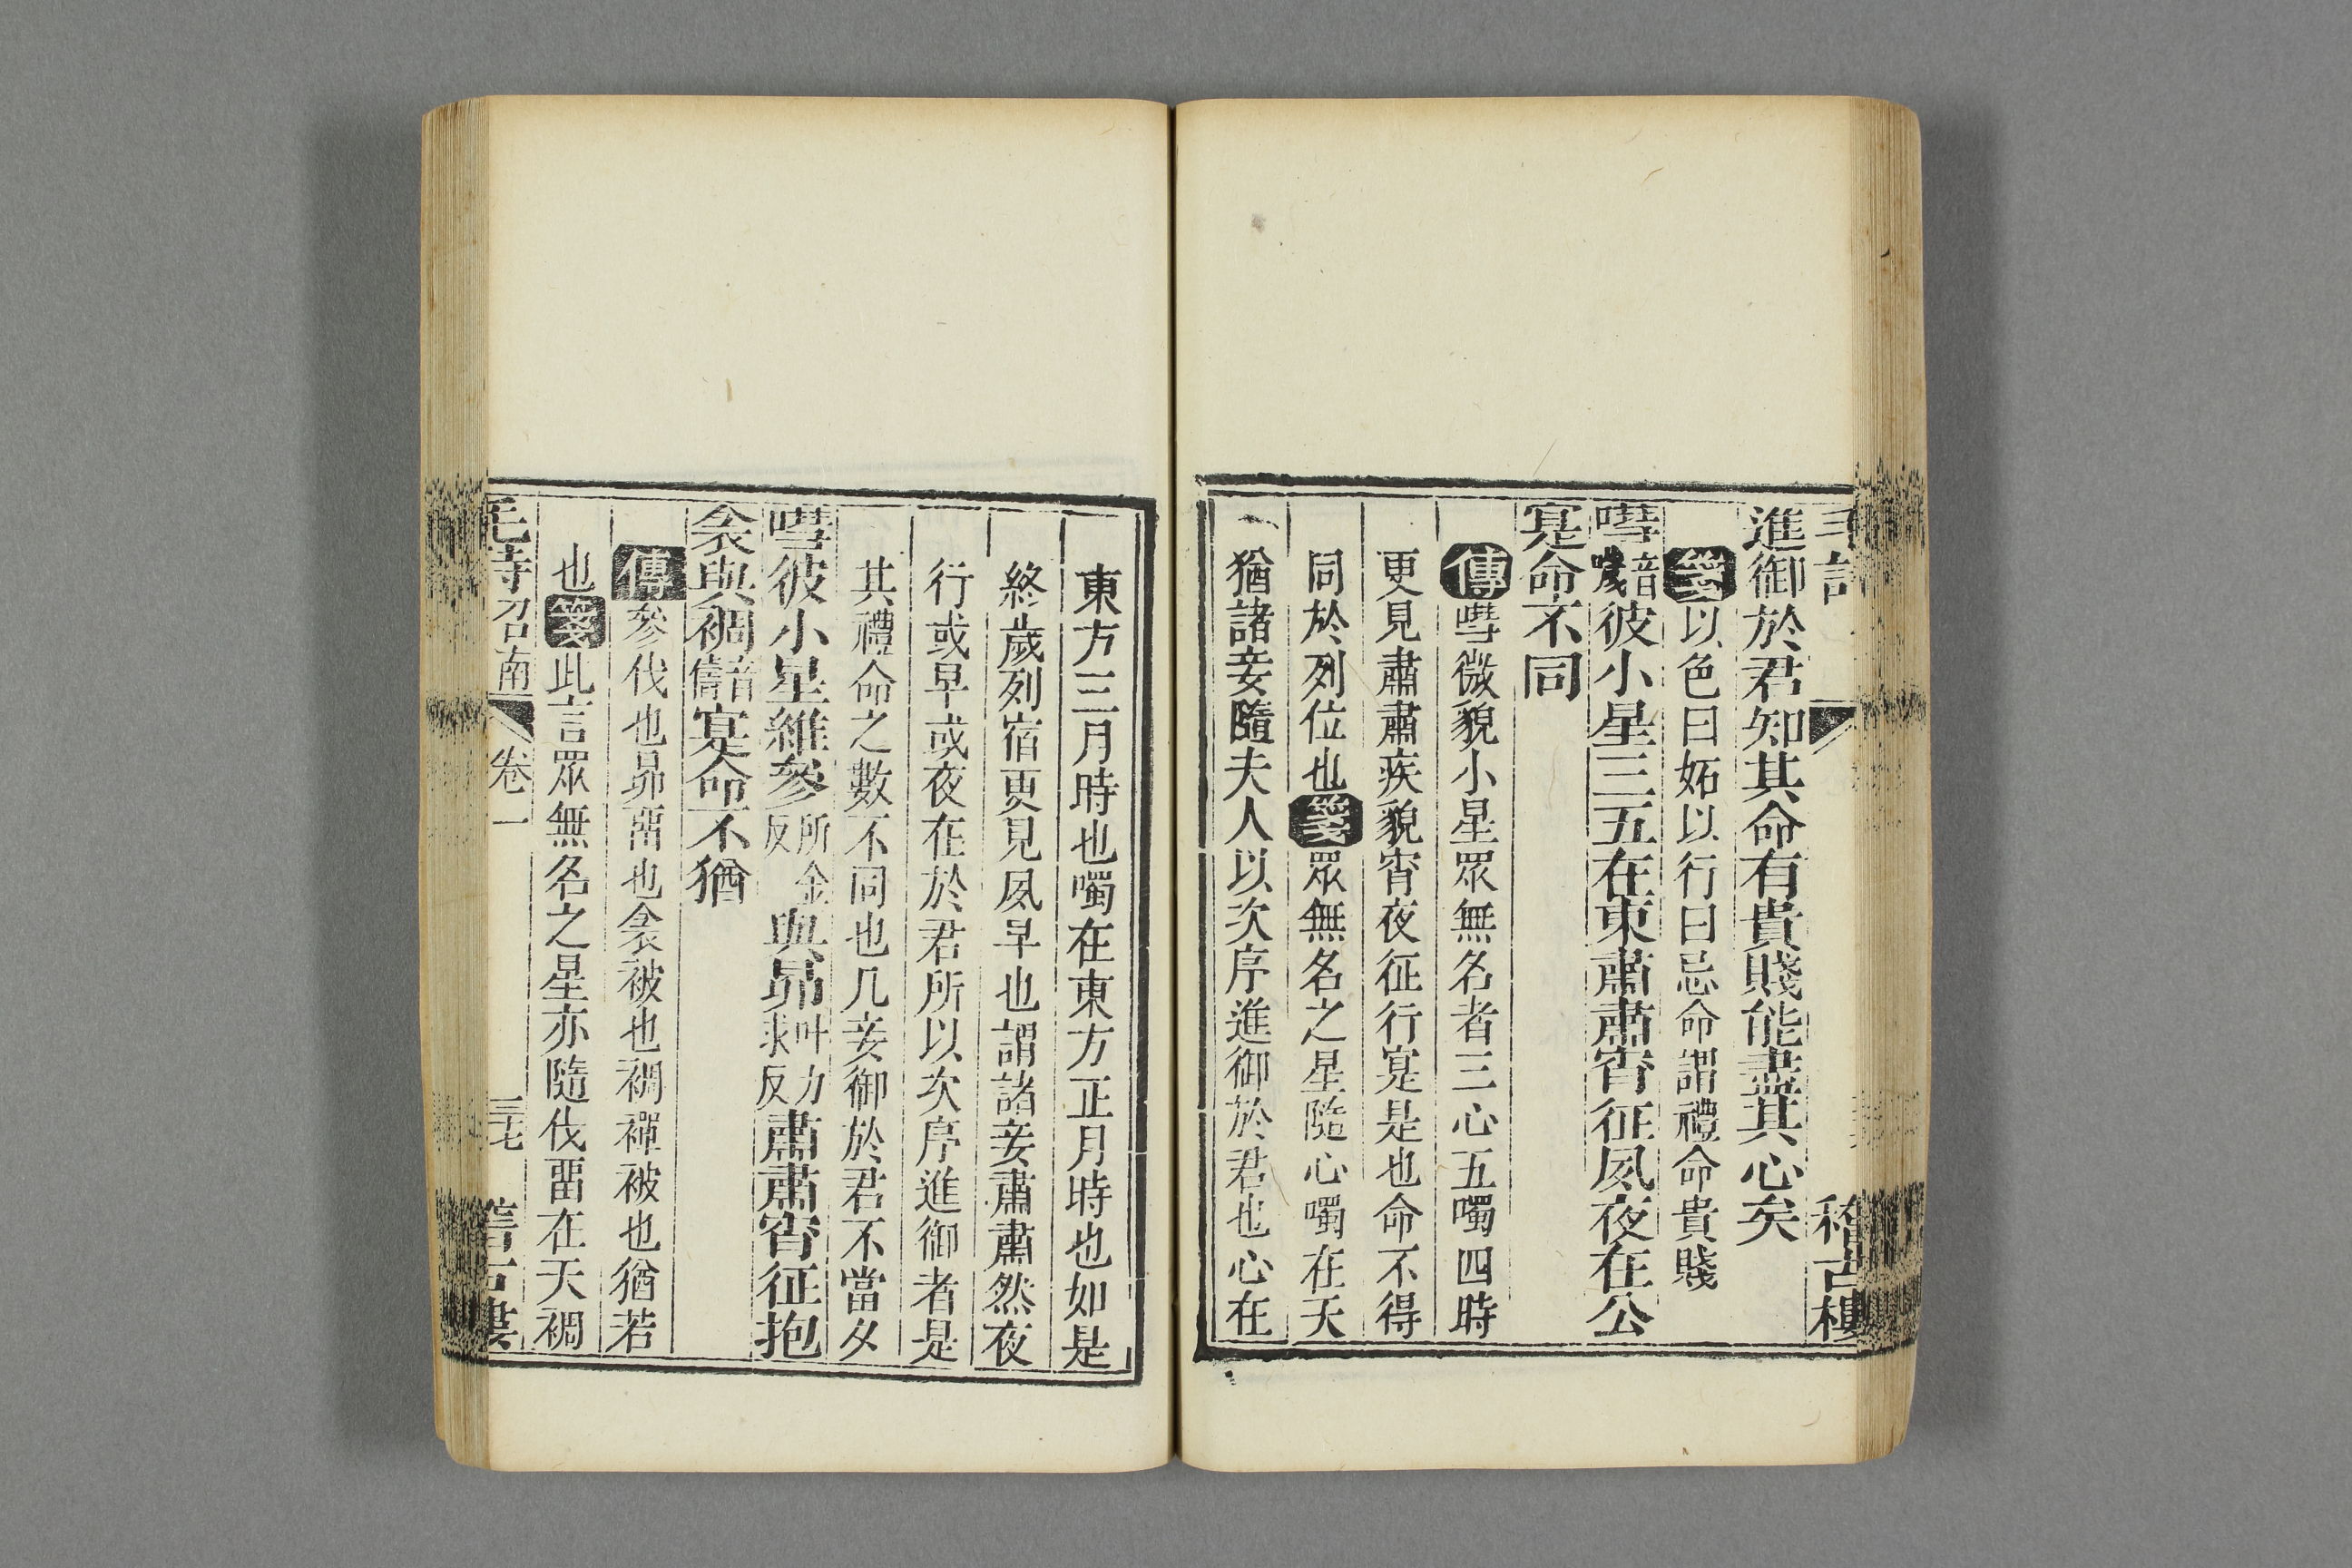 進御於君知其命有貴賤能盡其心矣
箋以色曰妬以行曰忌命謂禮命貴賤
嘒音嚖彼小星三五在東肅肅宵征夙夜在公
寔命不同
傳嘒微貌小星眾無名者三心五噣四時
更見肅肅疾貌宵夜征行寔是也命不得
同於列位也箋眾無名之星隨心噣在天
猶諸妾隨夫人以次序進御於君也心在
東方三月時也噣在東方正月時也如是
終歲列宿更見夙早也謂諸妾肅肅然夜
行或早或夜在於君所以次序進御者是
其禮命之數不同也凡妾御於君不當夕
嘒彼小星維參所金反與昴叶力求反肅肅宵征抱
衾與裯音儔寔命不猶
傳參伐也昴畱也衾被也裯禪被也猶若
也箋此言眾無名之星亦隨伐畱在天裯
毛詩召南 卷一 三七
稽古樓